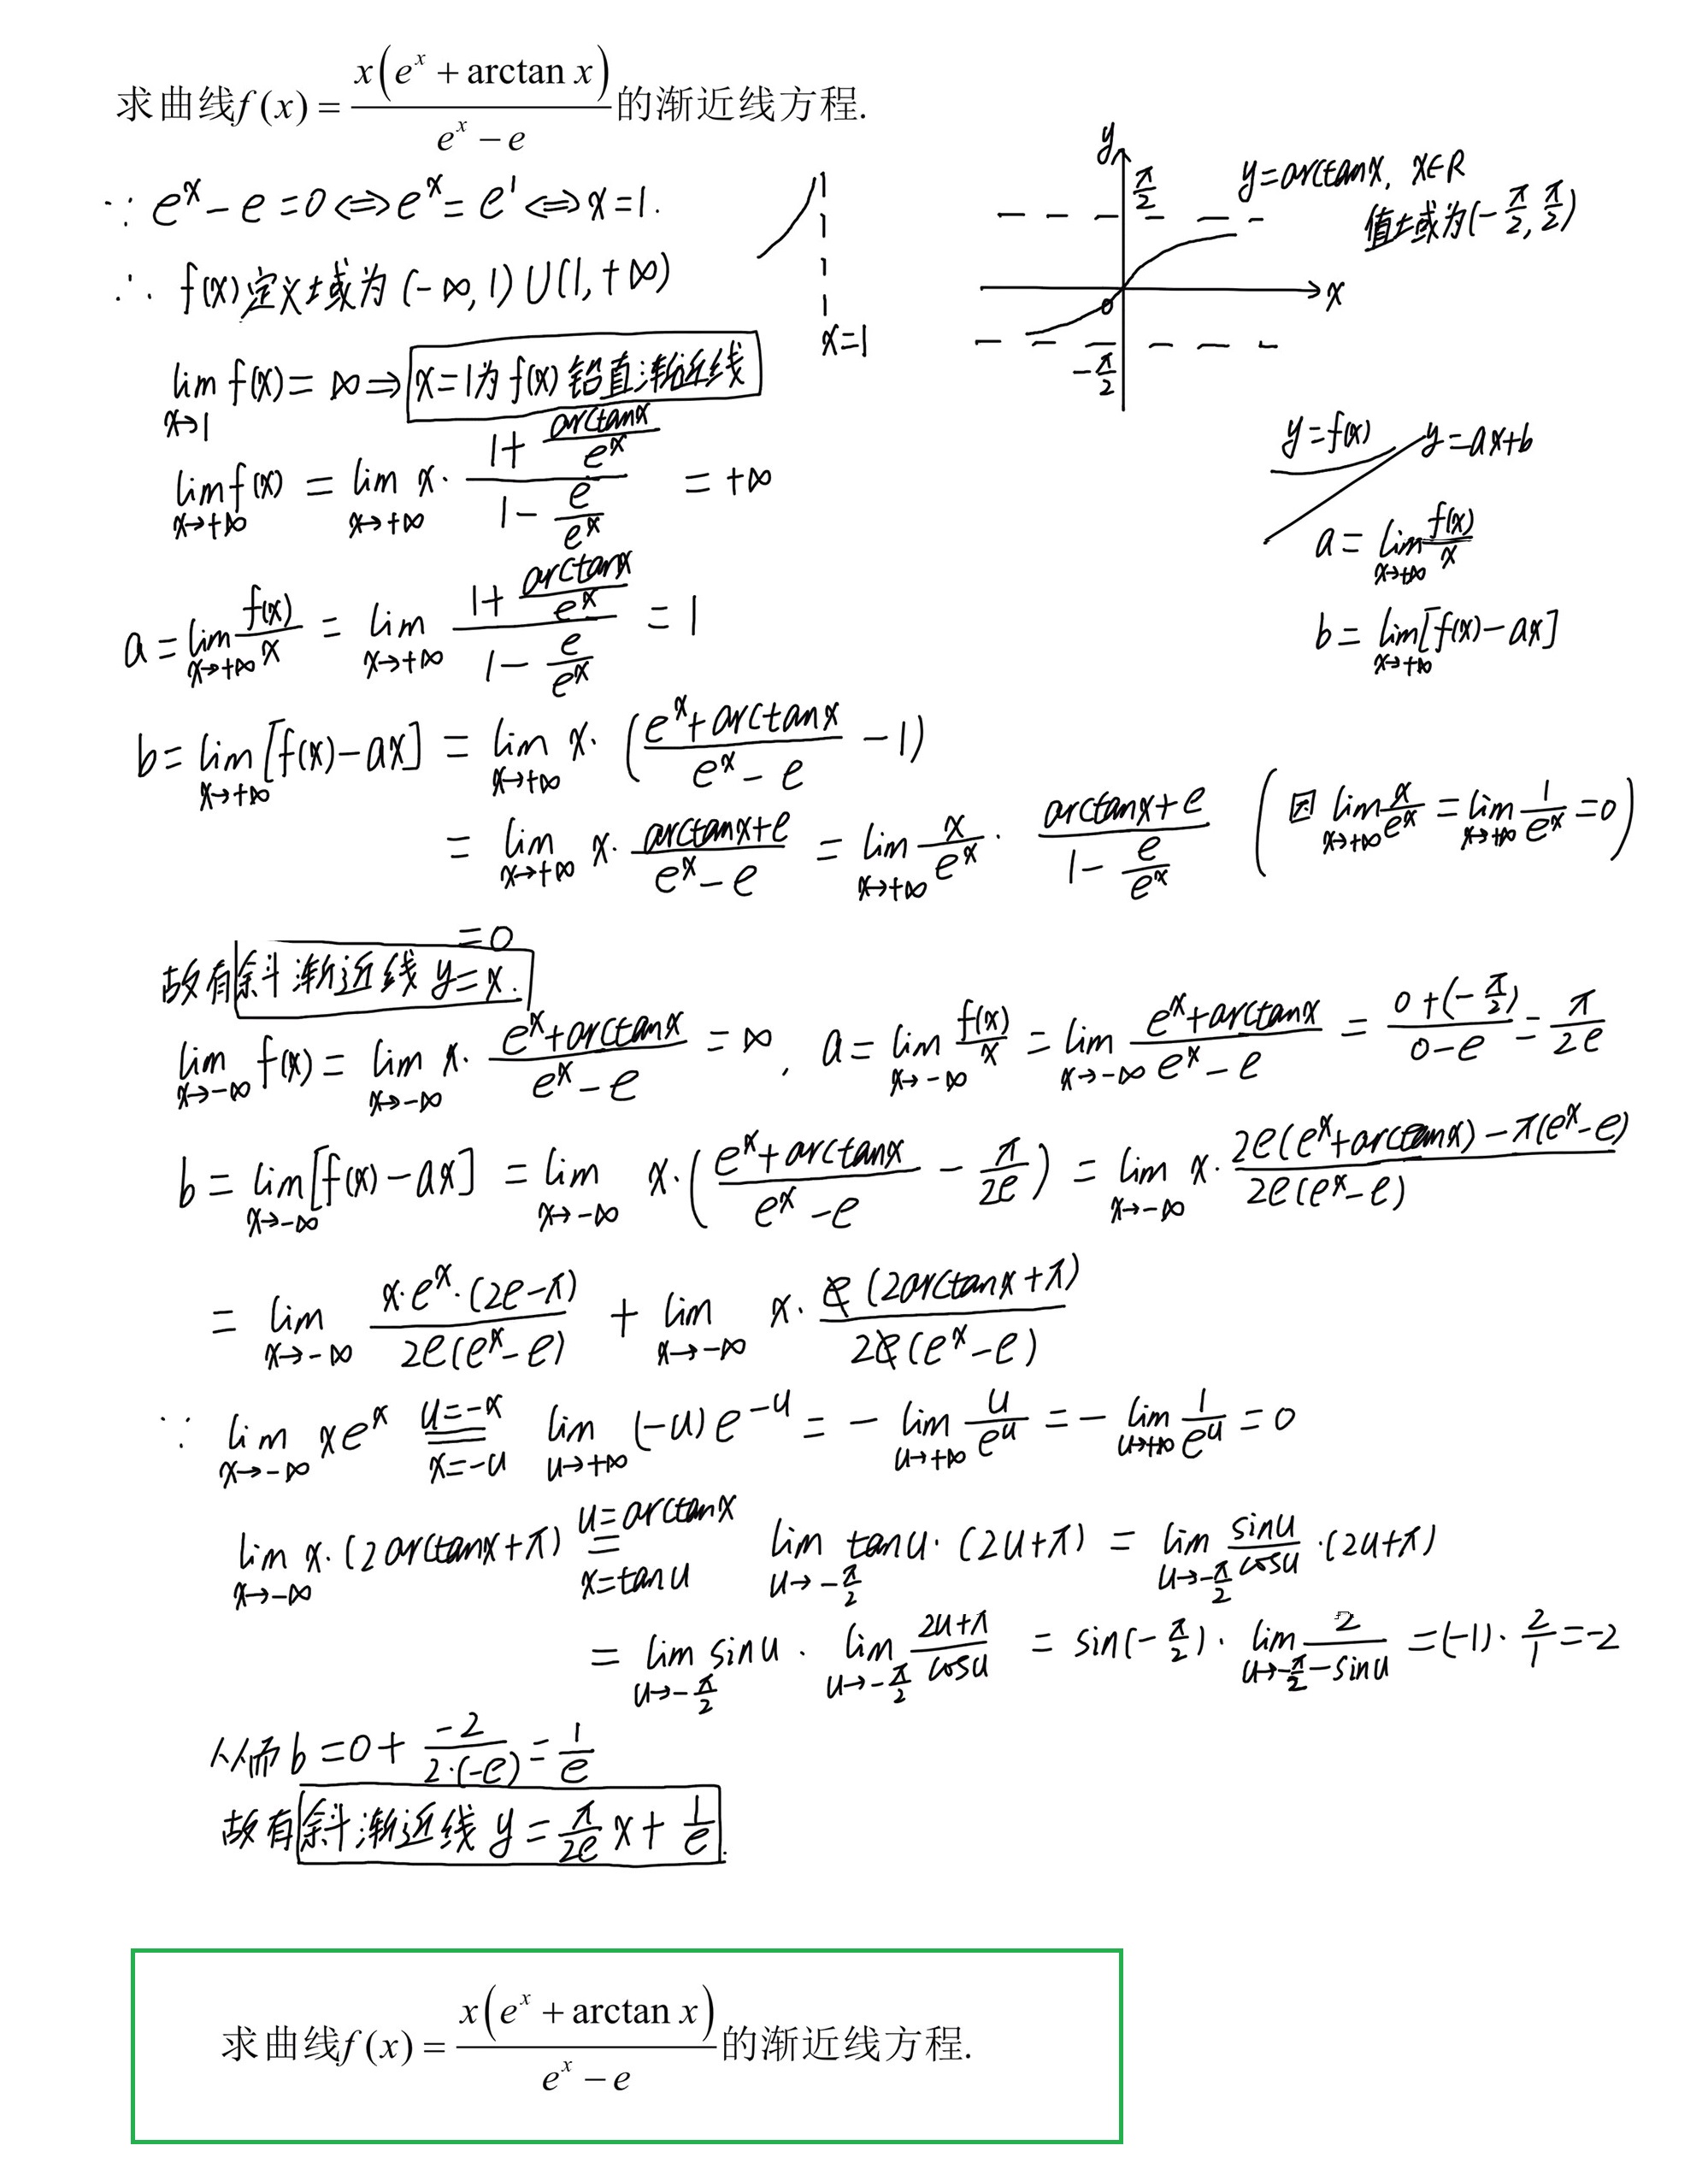 求曲线f(x) = x(e^x + arctan x) / (e^x − e) 的渐近线方程.
∵ e^x − e = 0 ⟺ e^x = e^1 ⟺ x = 1.
∴ f(x)定义域为 (−∞, 1) ∪ (1, +∞)
x=1
y
π/2
−π/2
0
x
y = arctanx, x∈R
值域为(−π/2, π/2)
lim_{x→1} f(x) = ∞ ⇒ x=1为f(x)铅直渐近线
lim_{x→+∞} f(x) = lim_{x→+∞} x · (1 + arctanx/e^x) / (1 − e/e^x) = +∞
y = f(x)
y = ax+b
a = lim_{x→+∞} f(x)/x
b = lim_{x→+∞} [f(x) − ax]
a = lim_{x→+∞} f(x)/x = lim_{x→+∞} (1 + arctanx/e^x) / (1 − e/e^x) = 1
b = lim_{x→+∞} [f(x) − ax] = lim_{x→+∞} x · ((e^x + arctanx)/(e^x − e) − 1)
= lim_{x→+∞} x · (arctanx + e)/(e^x − e) = lim_{x→+∞} x/e^x · (arctanx + e)/(1 − e/e^x) (因 lim_{x→+∞} x/e^x = lim_{x→+∞} 1/e^x = 0)
= 0
故有斜渐近线 y = x.
lim_{x→−∞} f(x) = lim_{x→−∞} x · (e^x + arctanx)/(e^x − e) = ∞, a = lim_{x→−∞} f(x)/x = lim_{x→−∞} (e^x + arctanx)/(e^x − e) = (0 + (−π/2))/(0 − e) = π/2e
b = lim_{x→−∞} [f(x) − ax] = lim_{x→−∞} x · ((e^x + arctanx)/(e^x − e) − π/2e) = lim_{x→−∞} x · (2e(e^x + arctanx) − π(e^x − e))/(2e(e^x − e))
= lim_{x→−∞} (x · e^x · (2e − π))/(2e(e^x − e)) + lim_{x→−∞} x · (e(2arctanx + π))/(2e(e^x − e))
∵ lim_{x→−∞} xe^x = (u=−x, x=−u) lim_{u→+∞} (−u)e^{−u} = − lim_{u→+∞} u/e^u = − lim_{u→+∞} 1/e^u = 0
lim_{x→−∞} x · (2arctanx + π) = (u=arctanx, x=tanu) lim_{u→−π/2} tanu · (2u+π) = lim_{u→−π/2} sinu/cosu · (2u+π)
= lim_{u→−π/2} sinu · lim_{u→−π/2} (2u+π)/cosu = sin(−π/2) · lim_{u→−π/2} 2/(−sinu) = (−1) · 2/1 = −2
从而 b = 0 + −2/(2·(−e)) = 1/e
故有斜渐近线 y = π/2e x + 1/e.
求曲线f(x) = x(e^x + arctan x) / (e^x − e) 的渐近线方程.